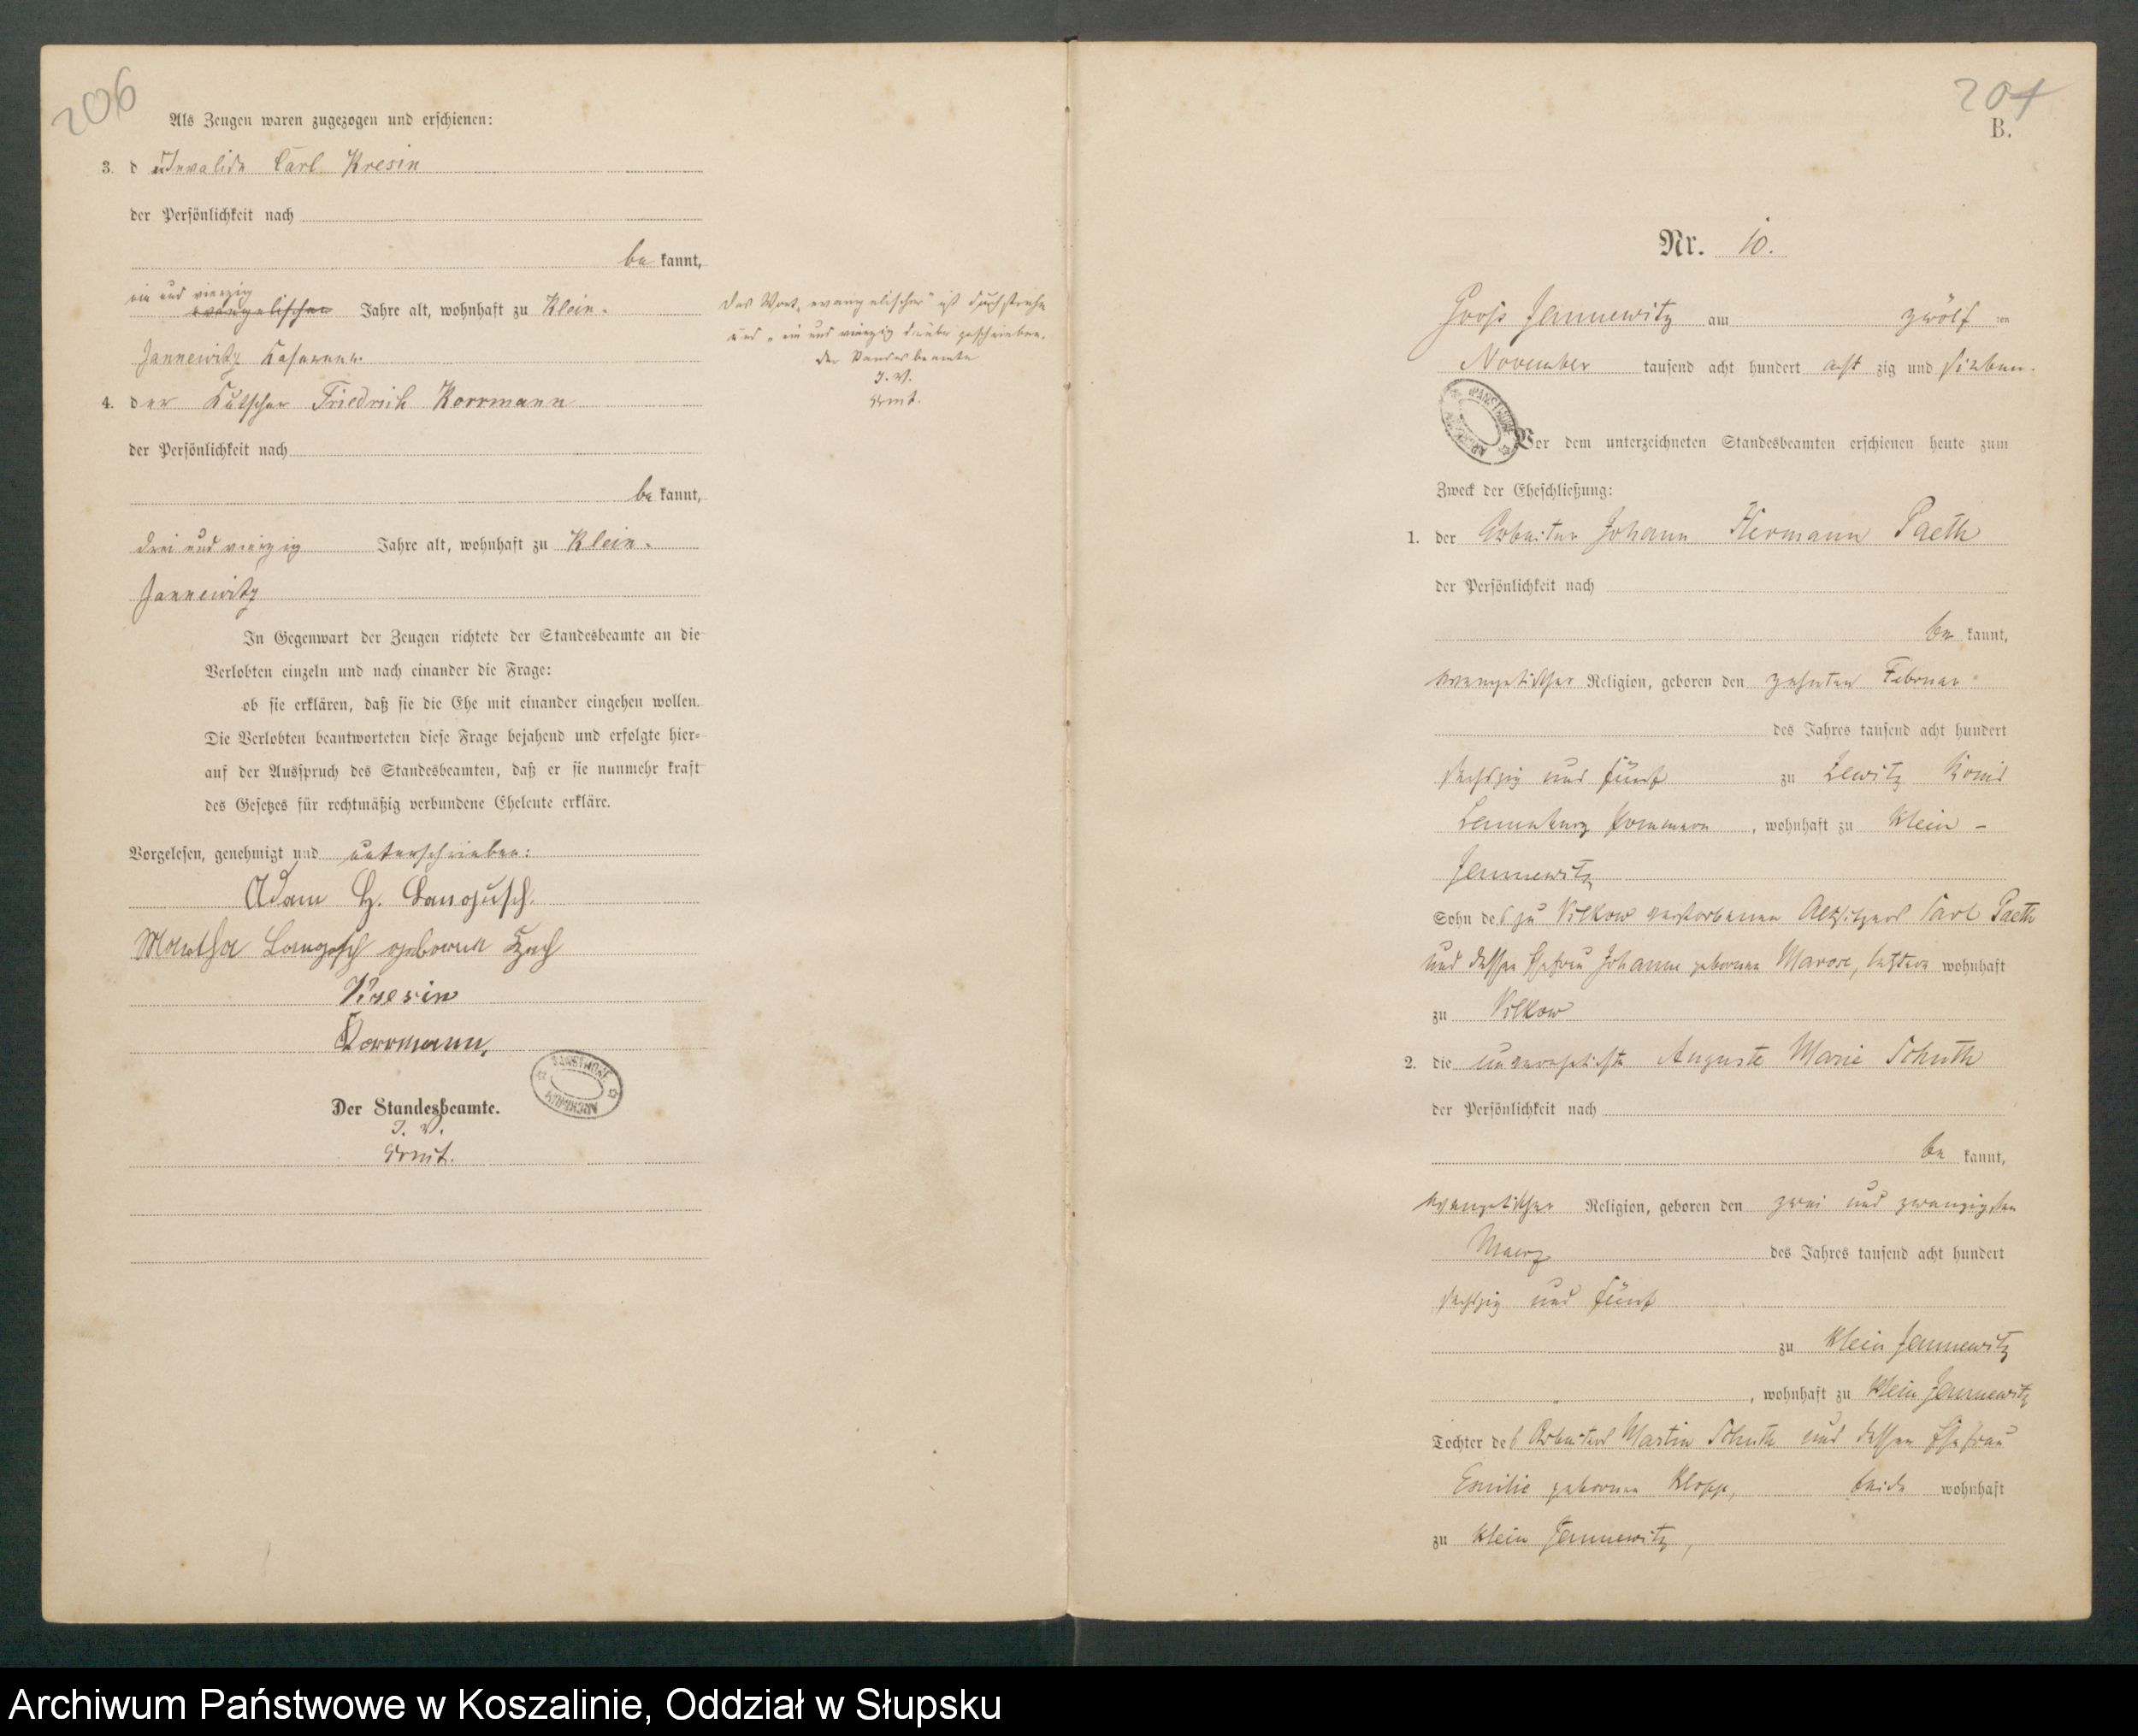 206
Als Zeugen waren zugezogen und erschienen:
3. d Invalide Carl Kresin
der Persönlichkeit nach
be kannt,
ein und vierzig
evangelischer Jahre alt, wohnhaft zu Klein-
Jannewitz
4. der Kutscher Friedrich Korrmann
der Persönlichkeit nach
be kannt,
drei und vierzig Jahre alt, wohnhaft zu Klein-
Jannewitz
In Gegenwart der Zeugen richtete der Standesbeamte an die
Verlobten einzeln und nach einander die Frage:
ob sie erklären, daß sie die Ehe mit einander eingehen wollen.
Die Verlobten beantworteten diese Frage bejahend und erfolgte hier-
auf der Ausspruch des Standesbeamten, daß er sie nunmehr kraft
des Gesetzes für rechtmäßig verbundene Eheleute erkläre.
Vorgelesen, genehmigt und unterschrieben:
Adam H.
Martha geborene
Kresin
Korrmann.
Der Standesbeamte.
I. V.
Das Wort „evangelischer" ist durchstrichen
und „ein und vierzig" darüber geschrieben.
Der Standesbeamte
I. V.
207
B.
Nr. 10.
Gross Jannewitz am zwölf ten
November tausend acht hundert acht zig und sieben.
Vor dem unterzeichneten Standesbeamten erschienen heute zum
Zweck der Eheschließung:
1. der Arbeiter Johann Hermann Paeth
der Persönlichkeit nach
be kannt,
evangelischer Religion, geboren den zehnten Februar
des Jahres tausend acht hundert
sechszig und fünf zu Zewitz Kreis
Lauenburg Pommern, wohnhaft zu Klein-
Jannewitz
Sohn des zu Vilkow verstorbenen Altsitzers Carl Paeth
und dessen Ehefrau Johanne geborenen Marose, letztere wohnhaft
zu Vilkow
2. die unverehelichte Auguste Marie Schuth
der Persönlichkeit nach
be kannt,
evangelischer Religion, geboren den zwei und zwanzigsten
Maerz des Jahres tausend acht hundert
sechszig und fünf
zu Klein Jannewitz
, wohnhaft zu Klein Jannewitz
Tochter des Arbeiters Martin Schuth und dessen Ehefrau
Emilie geborenen Klopp, beide wohnhaft
zu Klein Jannewitz,
Archiwum Państwowe w Koszalinie, Oddział w Słupsku